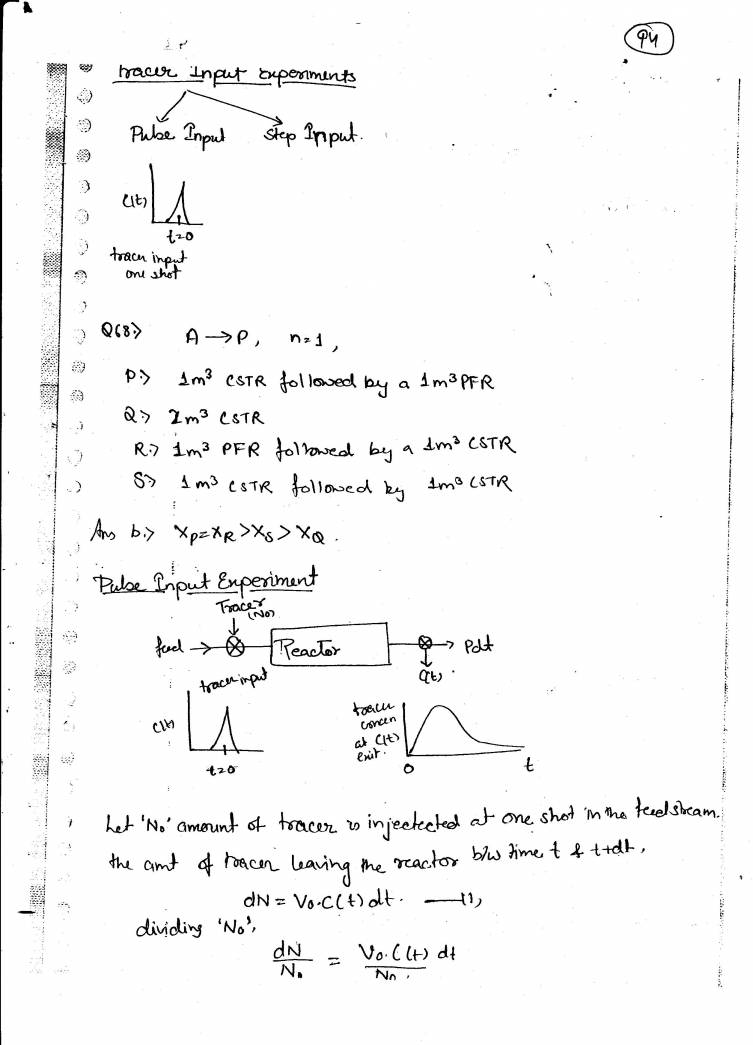 94
Tracer Input Experiments
Pulse Input Step Input.
C(t)
t=0
tracer input
one shot
Q68:> A → P, n=1,
P:> 1m³ CSTR followed by a 1m³ PFR
Q:> 2m³ CSTR
R:> 1m³ PFR followed by a 1m³ CSTR
S:> 1m³ CSTR followed by 1m³ CSTR
Ans b:> Xp=XR>XS>XQ.
Pulse Input Experiment
Tracer
(No)
feed → Reactor → Pdt
C(t).
tracer input
C(t)
t=0
tracer
concen
at C(t)
exit.
0 t
Let 'No' amount of tracer is injectected at one shot in the feed stream.
the amt of tracer leaving the reactor b/w time t & t+dt,
dN = Vo.C(t) dt. —(1),
dividing 'No',
dN/No = Vo.C(t) dt/No.